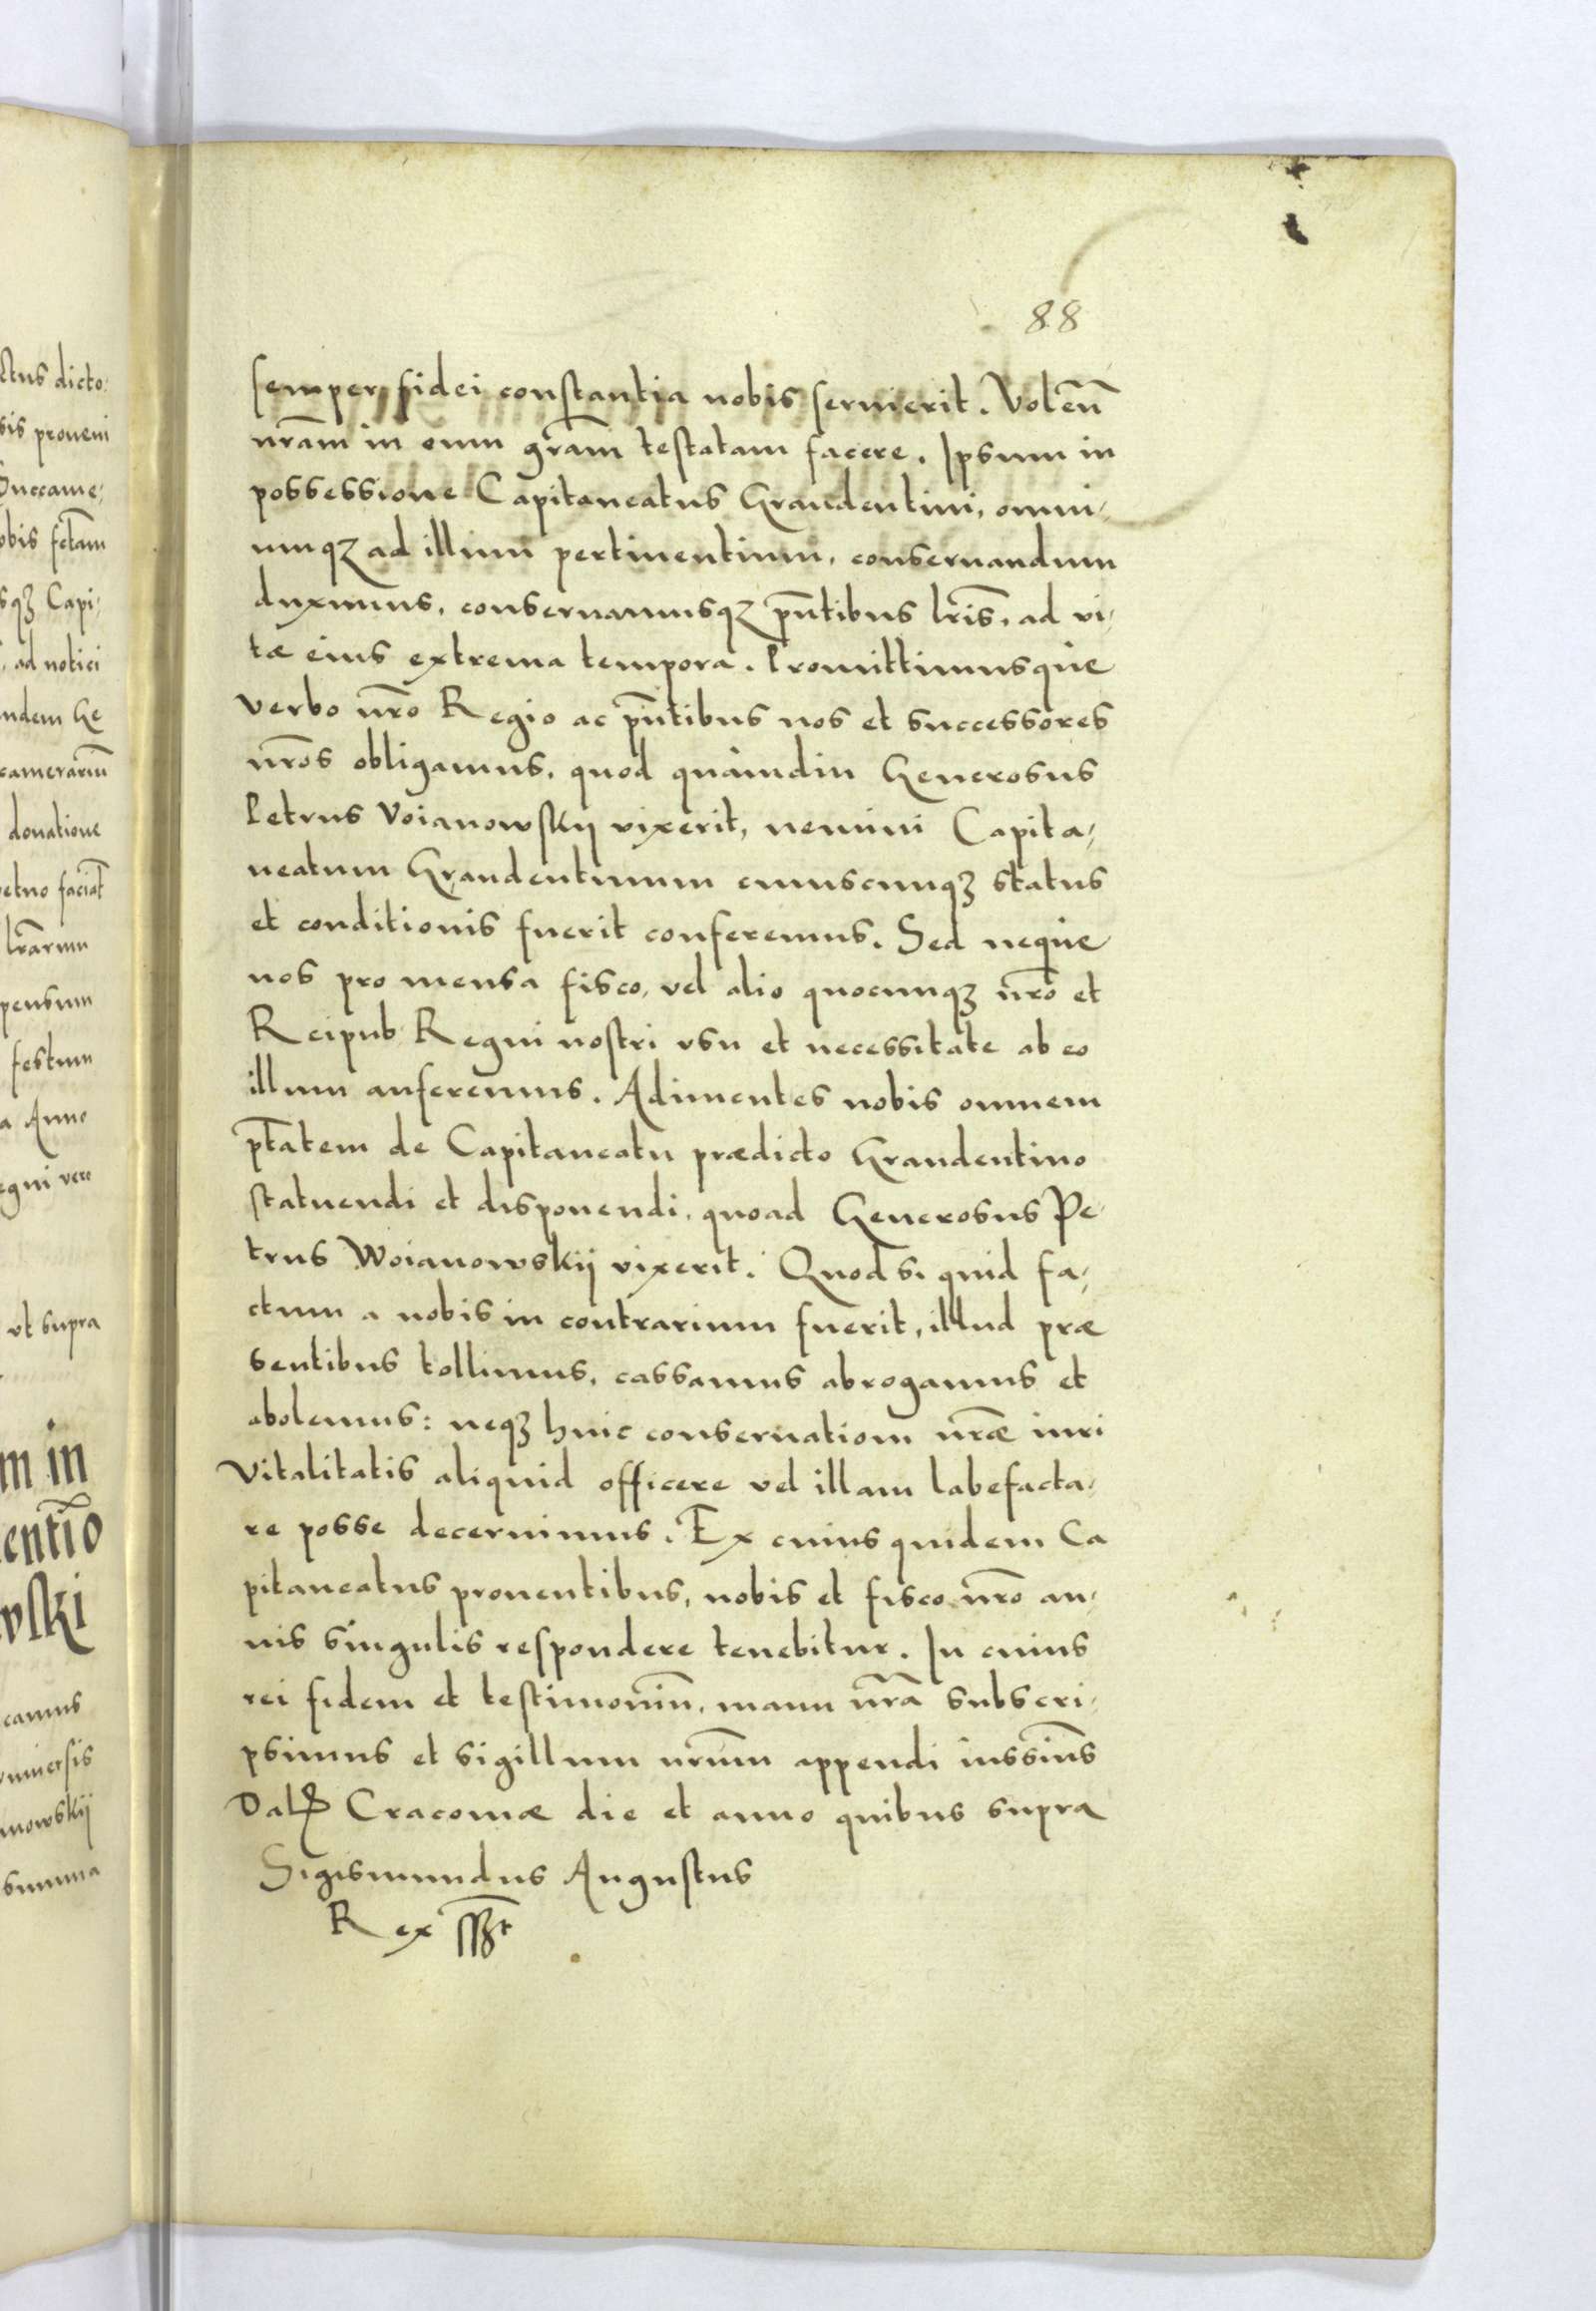 88
semper fidei constantia nobis servierit. Volen̄
nrãm in eum grãm testatam facere. Ipsum in
possessione Capitaneatus Graudentini, omni,
umqz ad illum pertinentium, conservandum
duximus, conservamusqz pñtibus lris̃, ad vi,
tæ eius extrema tempora. Promittimusque
verbo nrõ Regio ac pñtibus nos et successores
nrõs obligamus, quod quàmdiu Generosus
Petrus Voianowskij vixerit, nemini Capita,
neatum Graudentinum cuiuscunqz status
et conditionis fuerit conferemus. Sed neque
nos pro mensa fisco, vel alio quocunqz nrõ et
Reipub Regni nostri vsu et necessitate ab eo
illum auferemus. Adimentes nobis omnem
ptãtem de Capitaneatu prædicto Graudentino
statuendi et disponendi, quoad Generosus Pe,
trus Woianowskij vixerit. Quod si quid fa,
ctum a nobis in contrarium fuerit, illud præ
sentibus tollimus, cassamus abrogamus et
abolemus: neqz huic conservationi nrãe iuri
Vitalitatis aliquid officere vel illam labefacta,
re posse decernimus. Ex cuius quidem Ca
pitaneatus proventibus, nobis et fisco nrõ an,
nis singulis respondere tenebitur. In cuius
rei fidem et testimoniũ, manu nrã subscri,
psimus et sigillum nrũm appendi iussim̃s
Dat Cracoviæ die et anno quibus supra
Sigismundus Augustus
Rex sszt
ctus dicto
sis proveni
Succame,
obis
sqz Capi,
ad notici
ndem Ge
camerariũ
donatione
etuo faciat̃
lrãrum
pensum
festum
a Anno
egni vero
vt supra
m in
entĩo
wski
camus
niversis
nowskij
summa